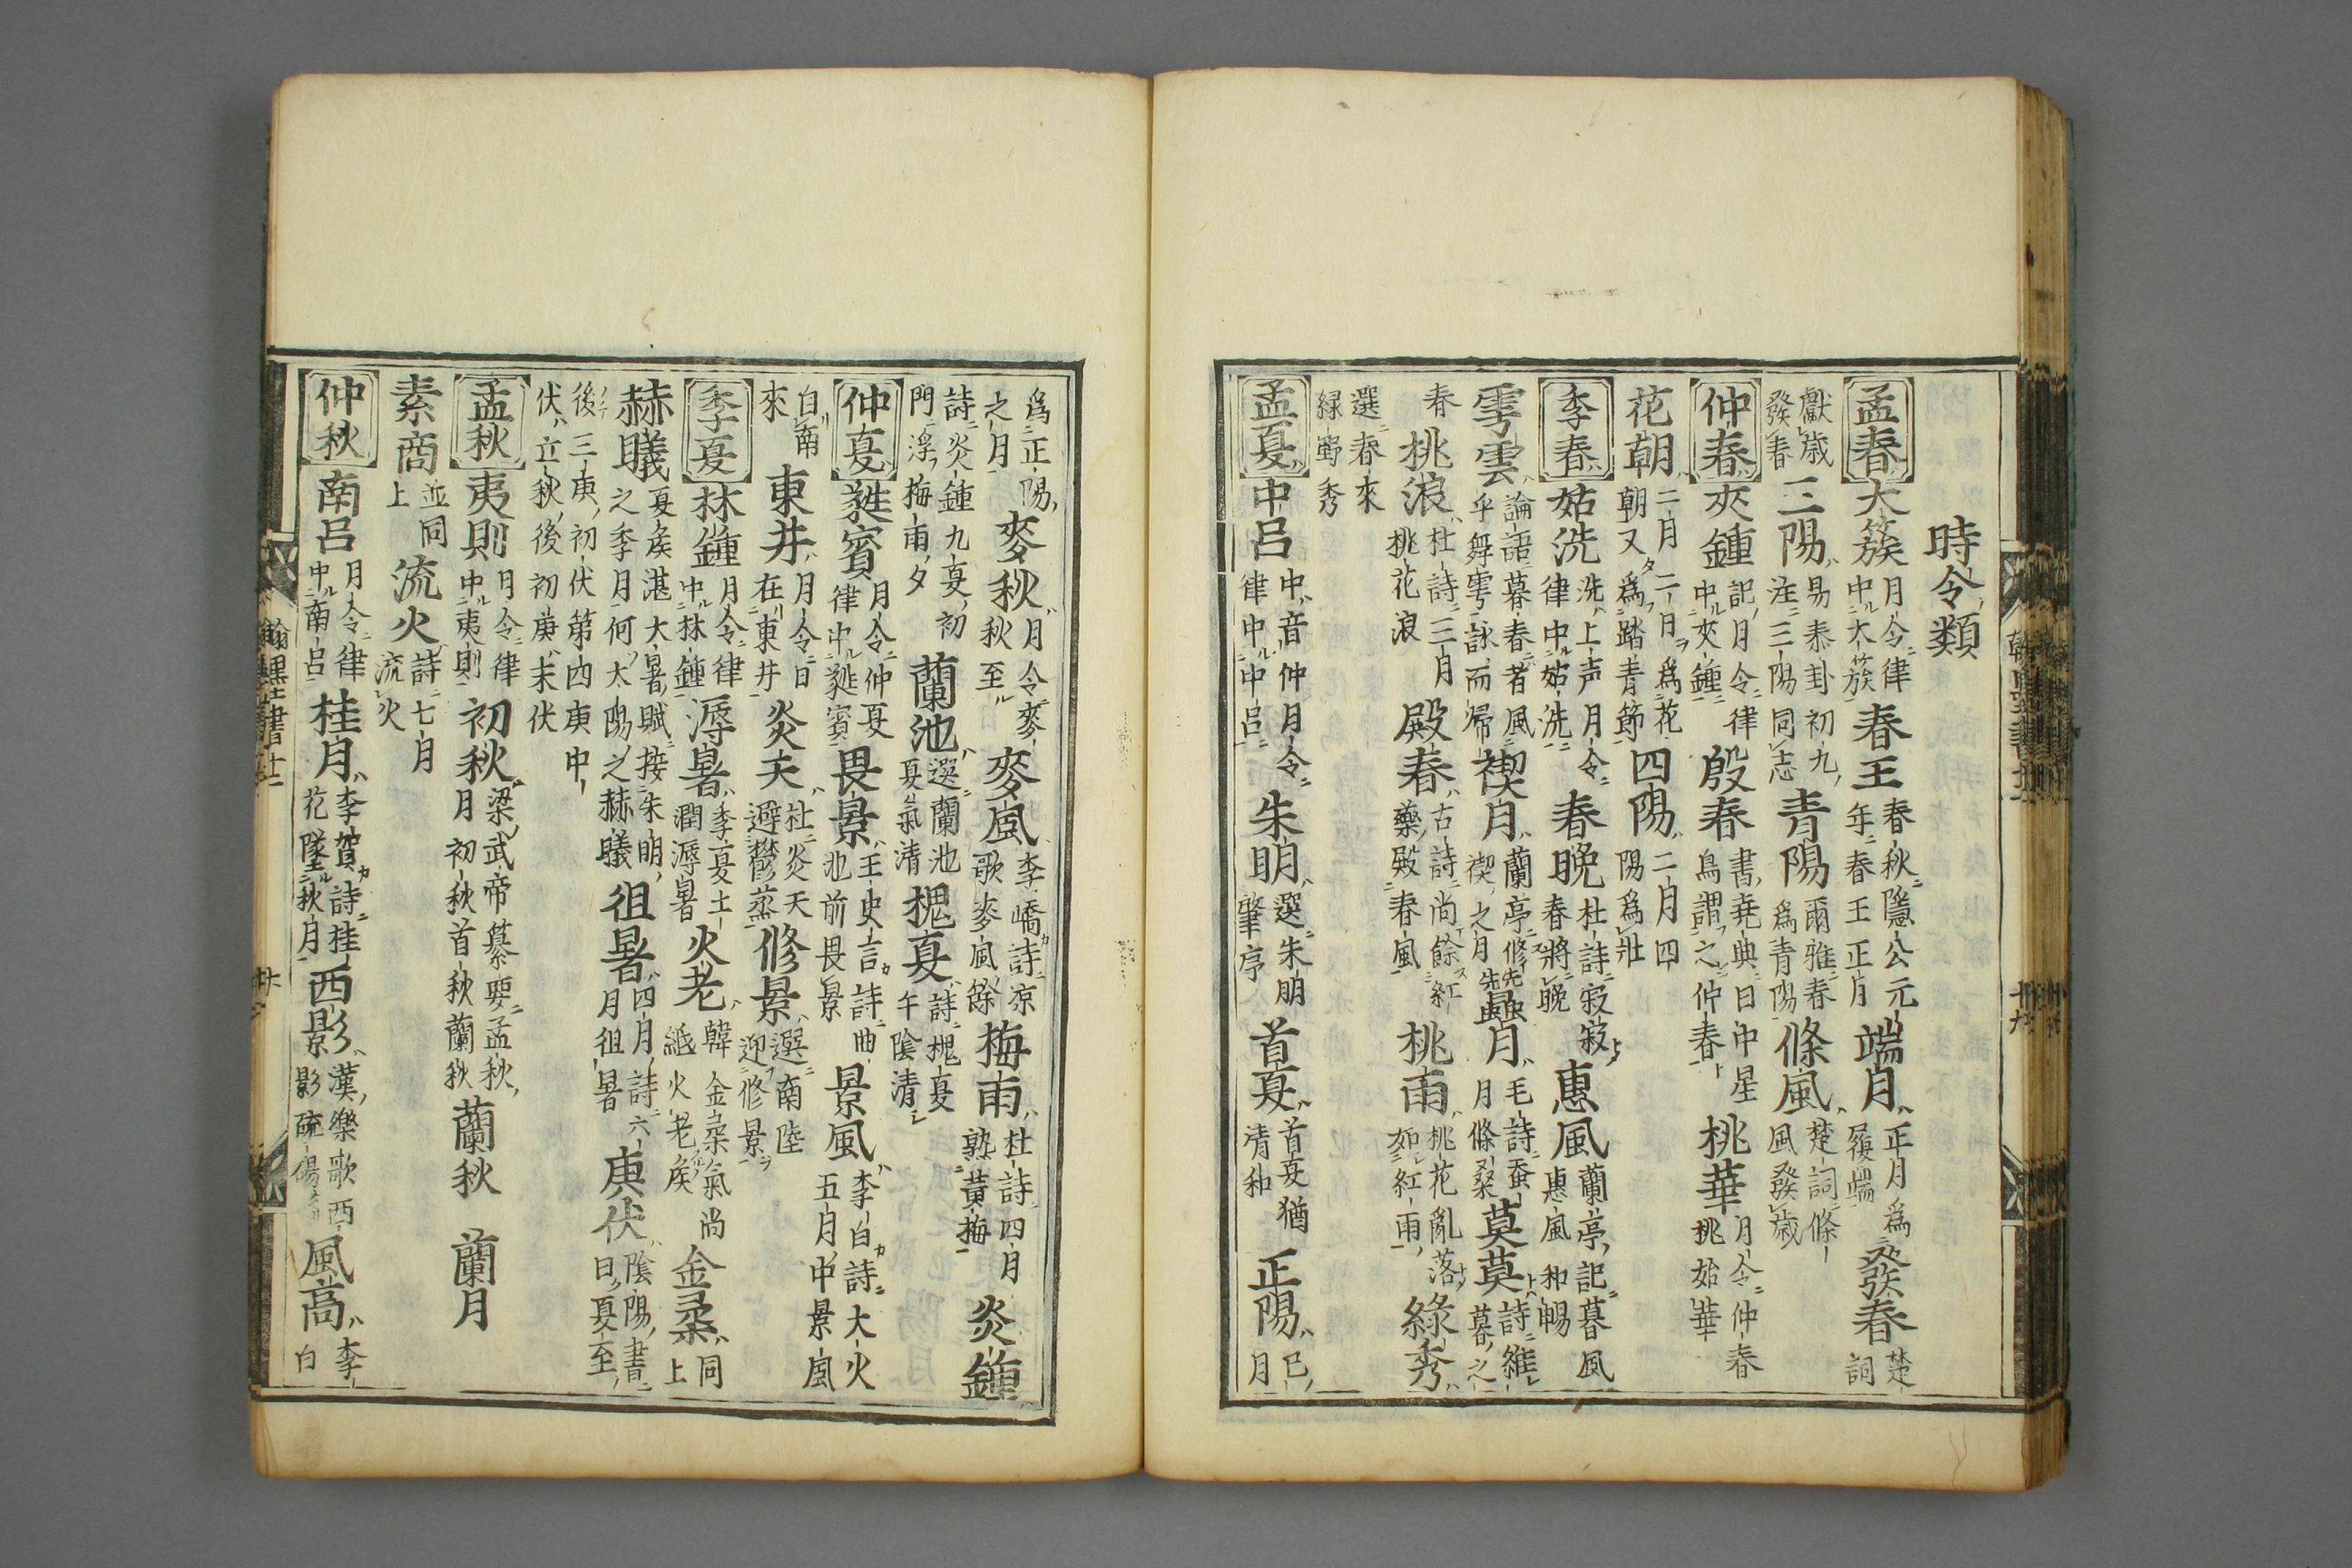 時令類
孟春 大簇 月令律中大簇 春王 春秋隱公元年春王正月 端月 正月爲履端 發春 楚詞
獻歳發春 三陽 易泰卦初九注三陽同志 青陽 爾雅春爲青陽 條風 楚詞條風發歳
仲春 夾鍾 記月令律中夾鍾 殷春 書堯典日中星鳥謂之仲春 桃華 月令仲春桃始華
花朝 二月二日爲花朝又爲踏青節 四陽 二月四陽爲壯
季春 姑洗 洗上声月令律中姑洗 春晩 杜詩寂寂春將晩 惠風 蘭亭記暮風惠風和暢
雩雲 論語暮春者風乎舞雩詠而帰 禊月 蘭亭修禊之月 蠶月 毛詩蚕月條桑 莫莫 詩維暮之
春 桃浪 杜詩三月桃花浪 殿春 古詩尚餘紅藥殿春風 桃雨 桃花亂落如紅雨 綠秀
選春來緑野秀
孟夏 中呂 中音仲月令律中中呂 朱明 選朱明肇序 首夏 首夏猶清和 正陽 巳月
爲正陽之月 麥秋 月令麥秋至 麥風 李嶠詩凉歌麥風餘 梅雨 杜詩四月熟黃梅 炎鍾
詩炎鍾九夏初門浮梅雨夕 蘭池 選蘭池夏氣清 槐夏 詩槐夏午陰清
仲夏 蕤賓 月令仲夏律中蕤賓 畏景 王史言詩曲池前畏景 景風 李白詩大火五月中景風
自南來 東井 月令日在東井 炎天 杜炎天避鬱蒸 修景 選南陸迎修景
季夏 林鍾 月令律中林鍾 溽暑 季夏土潤溽暑 火老 韓金柔氣尚紙火老候 金柔 同上
赫曦 夏侯湛大暑賦接朱明之季月何大陽之赫曦 徂暑 四月詩六月徂暑 庚伏 陰陽書曰夏至
後三庚初伏第四庚中伏立秋後初庚末伏
孟秋 夷則 月令律中夷則 初秋 梁武帝纂要孟秋月初秋首秋蘭秋 蘭秋 蘭月
素商 並同上 流火 詩七月流火
仲秋 南呂 月令律中南呂 桂月 李賀詩桂花墜秋月 西影 漢樂歌西影 風高 李白